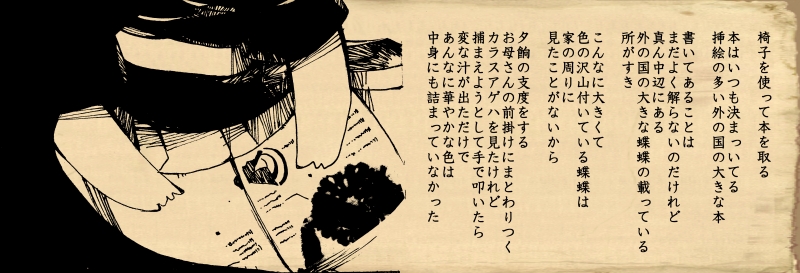 椅子を使って本を取る
本はいつも決まっいてる
挿絵の多い外の国の大きな本
書いてあることは
まだよく解らないのだけれど
真ん中辺にある
外の国の大きな蝶蝶の載っている
所がすき
こんなに大きくて
色の沢山付いている蝶蝶は
家の周りに
見たことがないから
夕餉の支度をする
お母さんの前掛けにまとわりつく
カラスアゲハを見たけれど
捕まえようとして手で叩いたら
変な汁が出ただけで
あんなに華やかな色は
中身にも詰まっていなかった